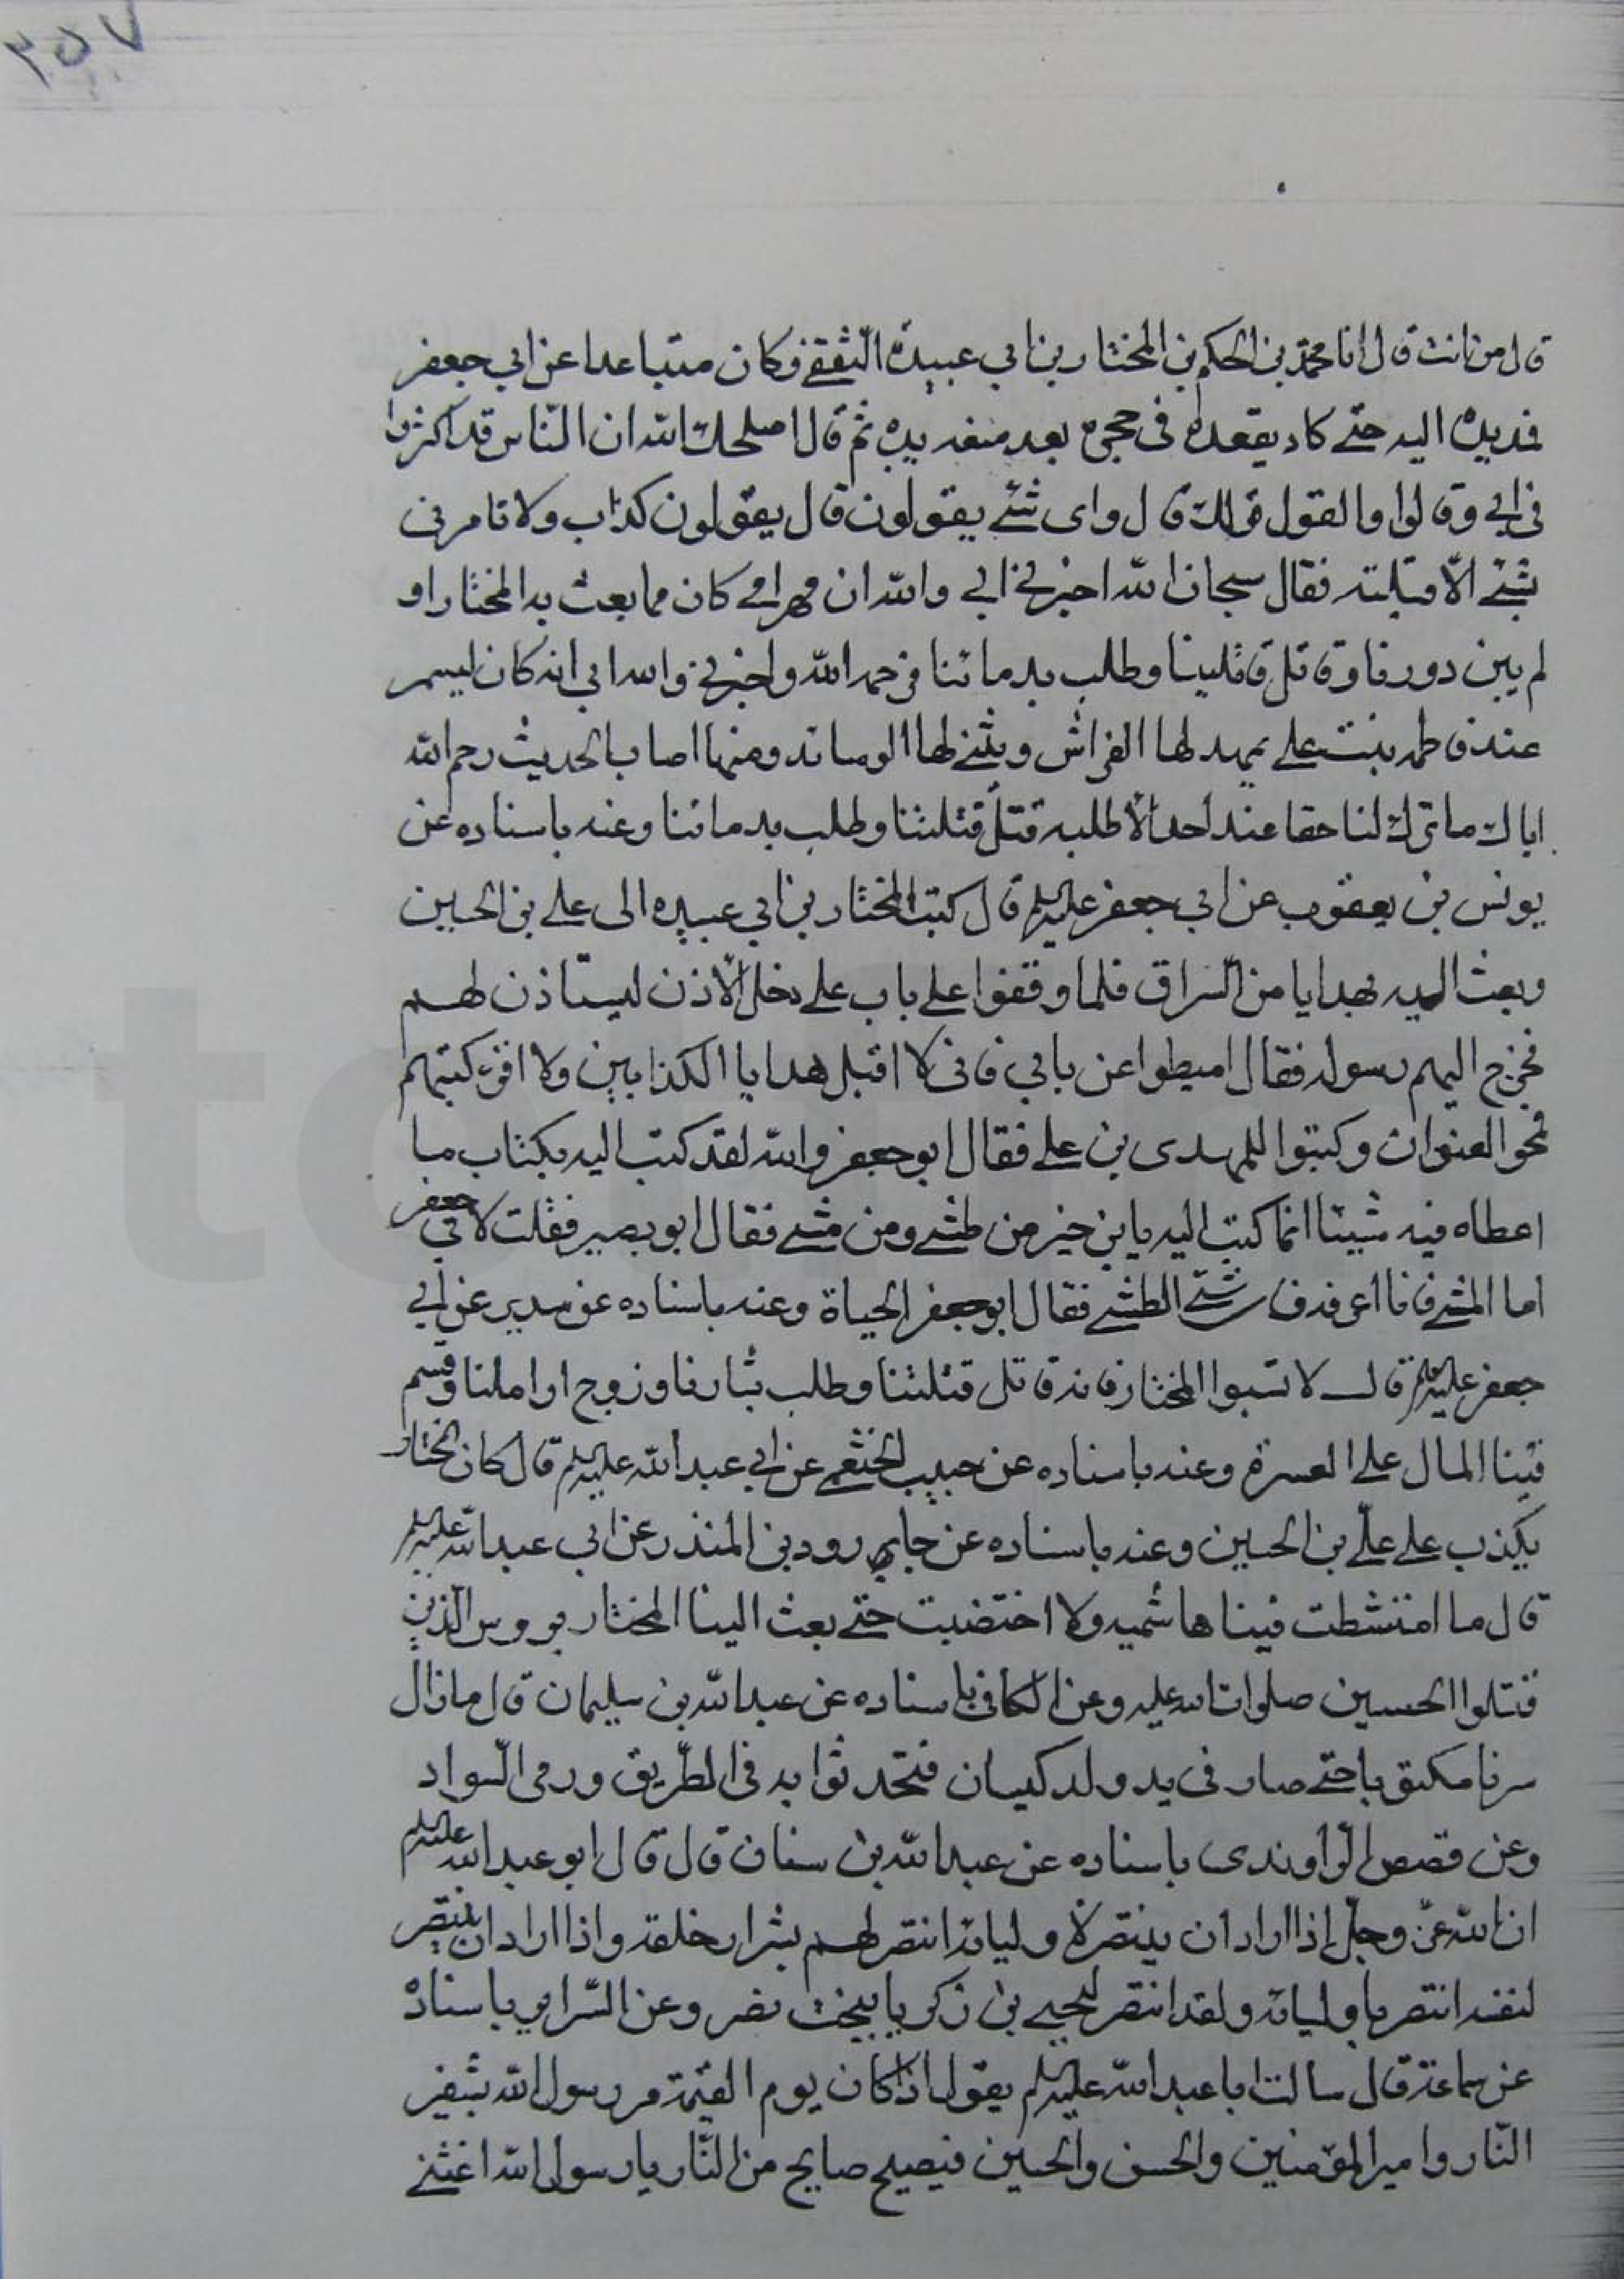 ٣٥٧
قال من انت قال انا محمد بن الحكم بن المختار بن ابي عبيدة الثقفي وكان متباعدا عن ابي جعفر
فمد يده اليه حتى كاد يقعده في حجره بعد منعه يده ثم قال اصلحك الله ان الناس قد اكثروا
في ابي وقالوا والقول قولك قال واي شئ يقولون قال يقولون كذاب ولا تامرني
بشئ الا قبلته فقال سبحان الله اخبرني ابي والله ان مهر امي كان مما بعث به المختار او
لم يبن دورنا وقاتل قاتلينا وطلب بدمائنا فرحمه الله واخبرني والله ابي انه كان ليسمر
عند فاطمه بنت علي يمهد لها الفراش ويثني لها الوسائد ومنها اصاب الحديث رحم الله
اباك ما ترك لنا حقا عند احد الا طلبه قتل قتلتنا وطلب بدمائنا وعنه باسناده عن
يونس بن يعقوب عن ابي جعفر عليه السلم قال كتب المختار بن ابي عبيده الى علي بن الحسين
وبعث اليه بهدايا من العراق فلما وقفوا علي باب علي دخل الآذن ليستاذن لهم
فخرج اليهم رسوله فقال اميطوا عن بابي فاني لا اقبل هدايا الكذابين ولا اقرء كتبهم
فمحوا العنوان وكتبوا للمهدي بن علي فقال ابو جعفر والله لقد كتب اليه بكتاب ما
اعطاه فيه شيئا انما كتب اليه يابن خير من طشي ومن مشي فقال ابو بصير فقلت لابي جعفر
اما المشي فانا اعرفه فاي شئ الطشي فقال ابو جعفر الحياة وعنه باسناده عن سدير عن ابي
جعفر عليه السلم قال لا تسبوا المختار فانه قاتل قتلتنا وطلب بثارنا وزوج اراملنا وقسم
فينا المال علي العسرة وعنه باسناده عن حبيب الخثعمي عن ابي عبد الله عليه السلم قال كان المختار
يكذب علي علي بن الحسين وعنه باسناده عن جارود بن المنذر عن ابي عبد الله عليه السلم
قال ما امتشطت فينا هاشميه ولا اختضبت حتى بعث الينا المختار برووس الذين
قتلوا الحسين صلوات الله عليه وعن الكافي باسناده عن عبد الله بن سليمان قال ما زال
سرنا مكتوما حتى صار في يد ولد كيسان فتحدثوا به في الطريق وقرى السواد
وعن قصص الراوندي باسناده عن عبد الله بن سنان قال قال ابو عبد الله عليه السلم
ان الله عز وجل اذا اراد ان ينتصر لاوليائه انتصر لهم بشرار خلقه واذا اراد ان ينتصر
لنفسه انتصر باوليائه ولقد انتصر ليحيي بن زكريا ببخت نصر وعن السراير باسناده
عن سماعة قال سالت ابا عبد الله عليه السلم يقول اذا كان يوم القيمة مر رسول الله بشفير
النار وامير المؤمنين والحسن والحسين فيصيح صايح من النار يا رسول الله اغثني